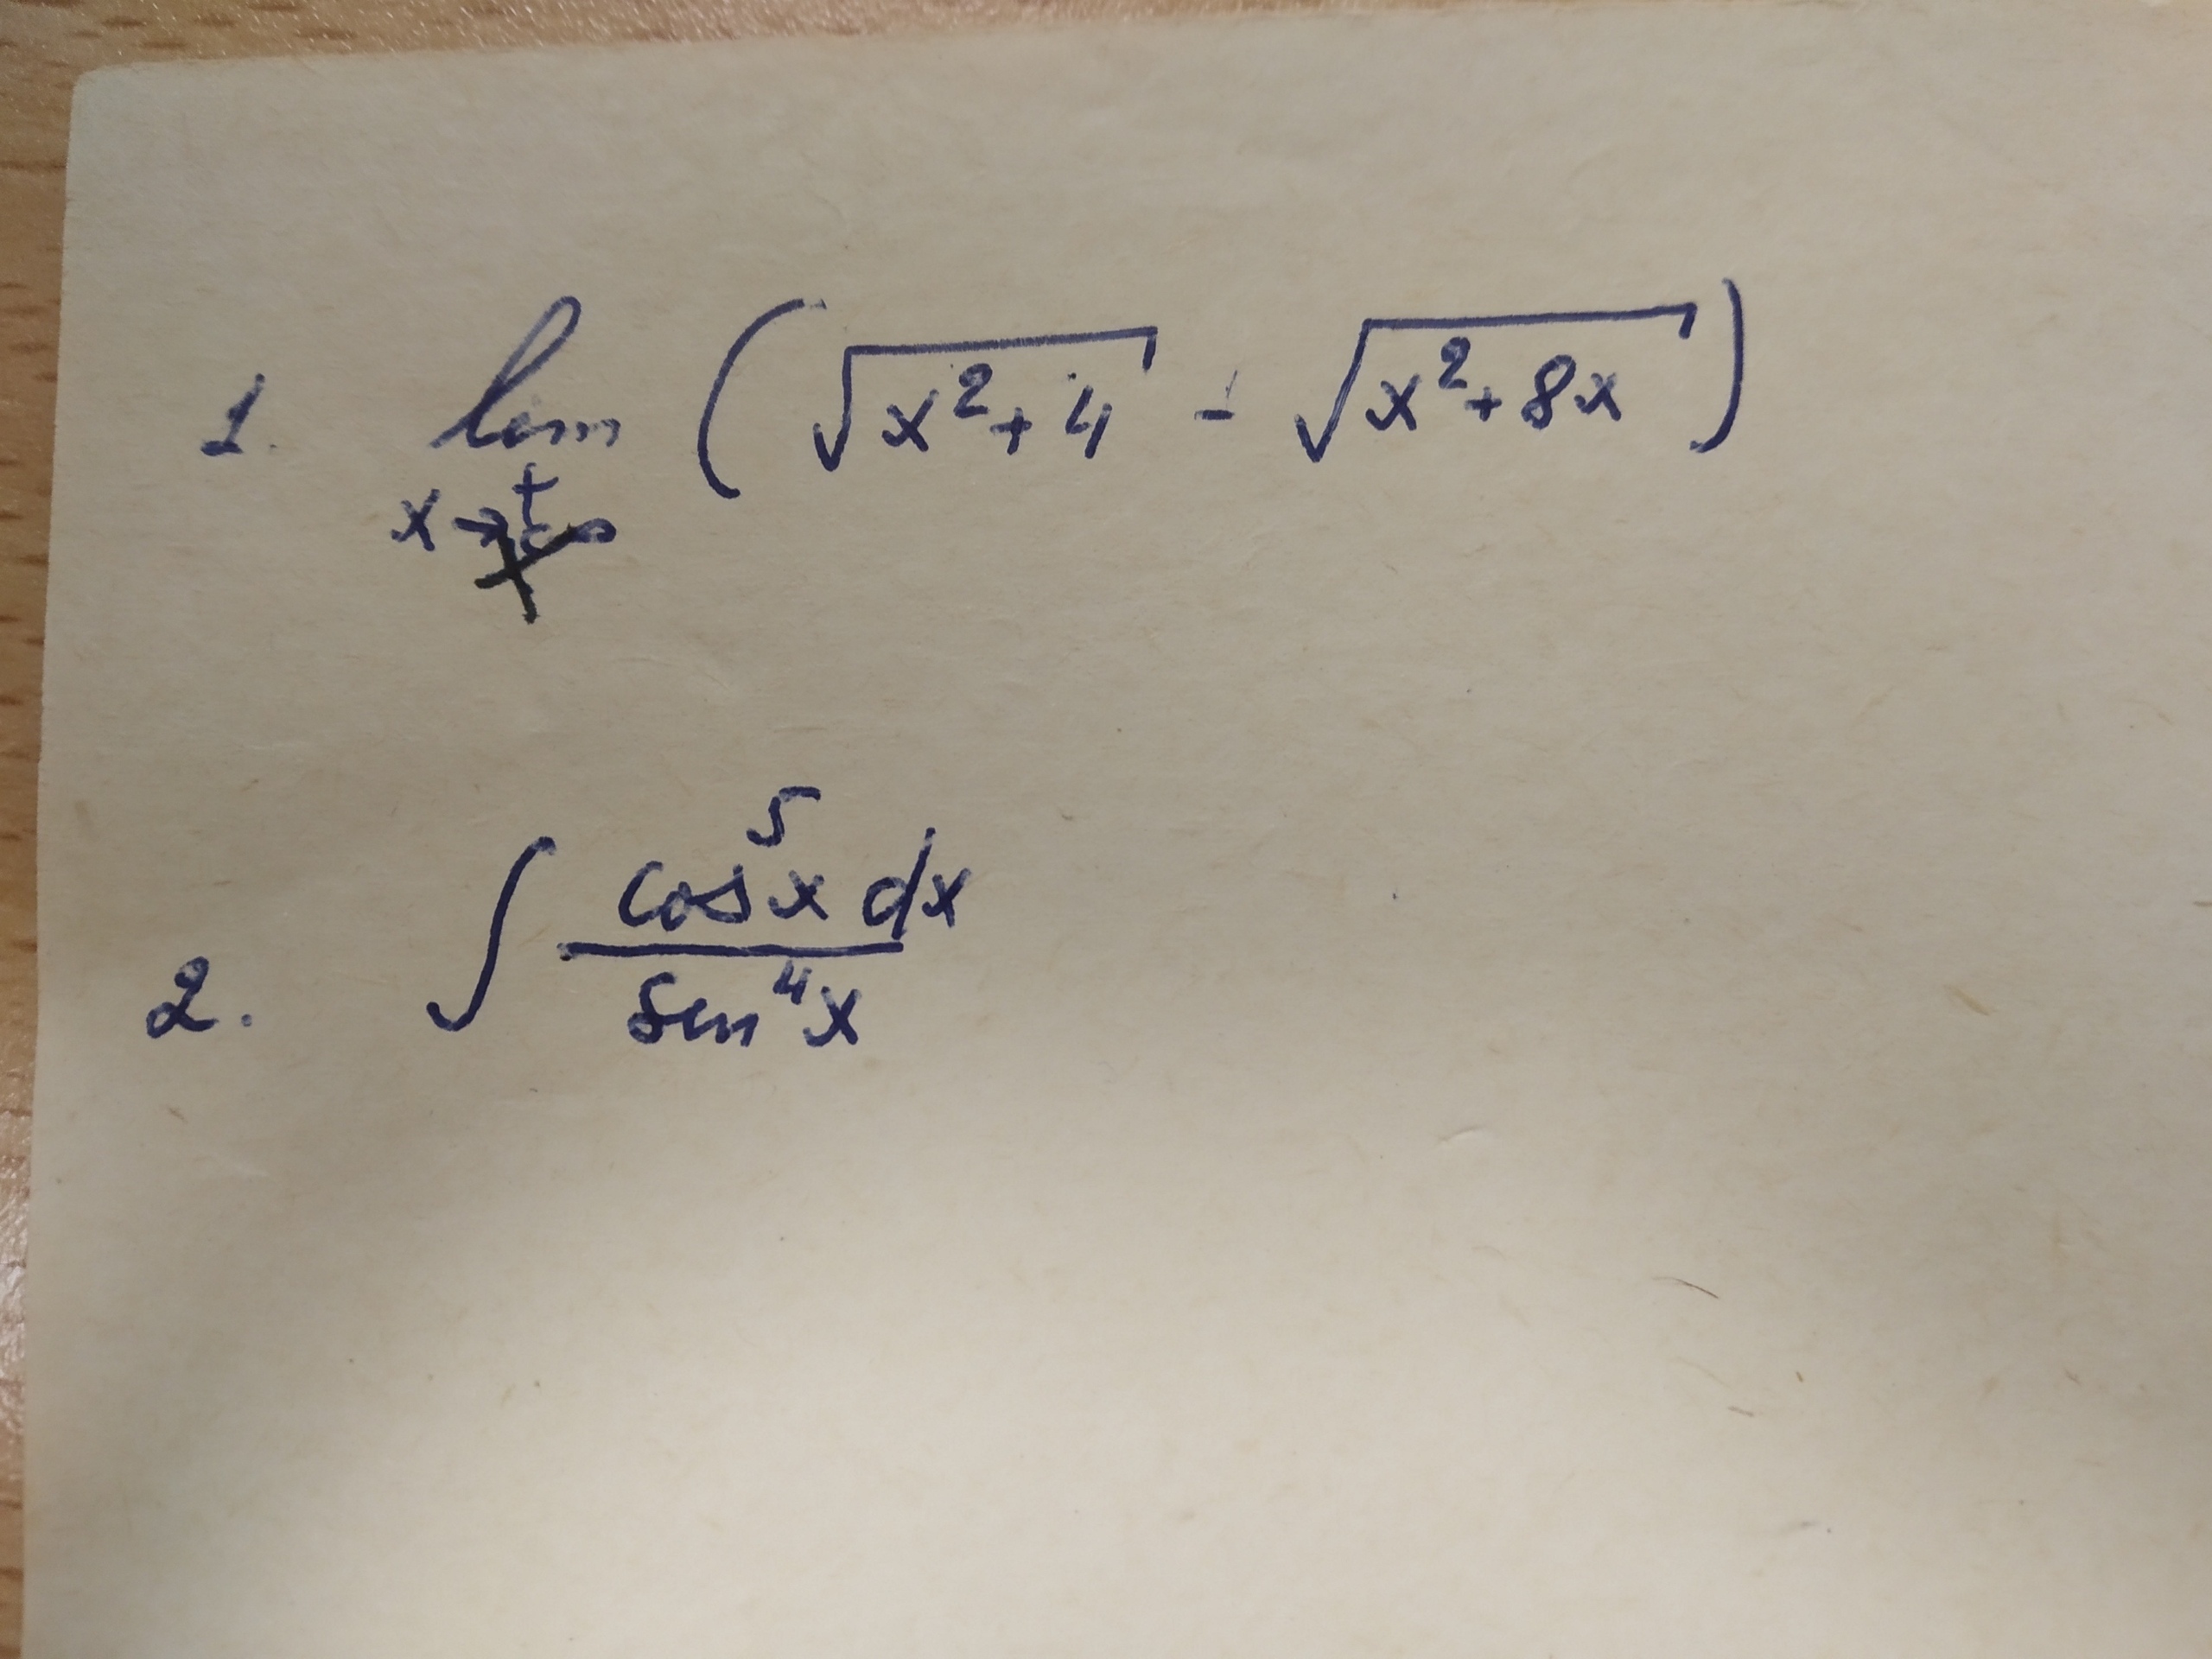 1. lim ( √(x²+4) - √(x²+8x) )
x→+∞
2. ∫ cos⁵x dx / sin⁴x